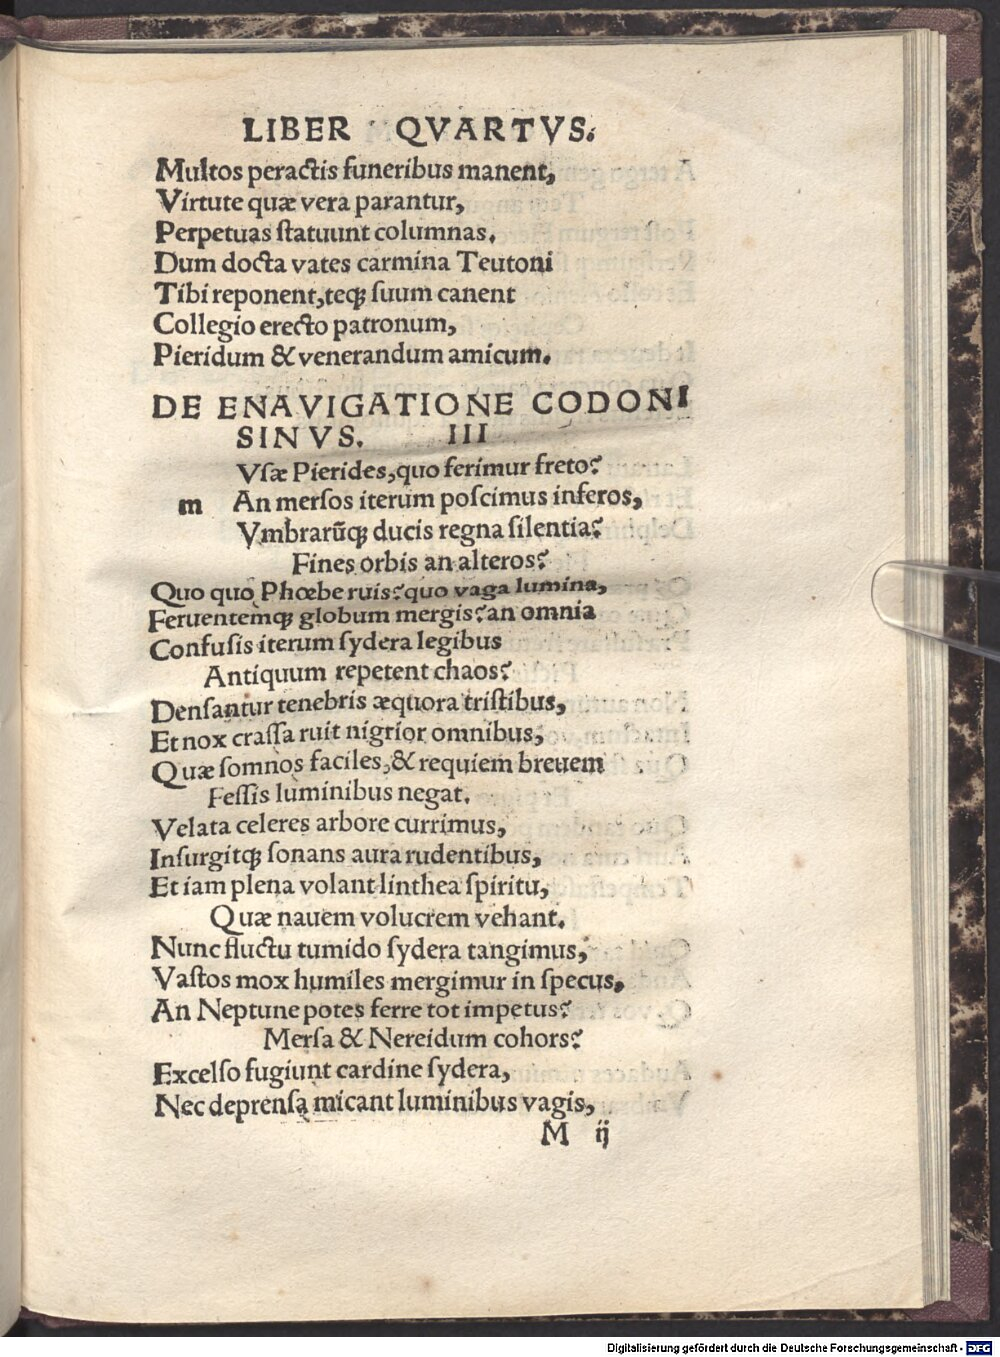 LIBER QVARTVS.
Multos peractis funeribus manent,
Virtute quæ vera parantur,
Perpetuas ſtatuunt columnas.
Dum docta vates carmina Teutoni
Tibi reponent,teqꝫ ſuum canent
Collegio erecto patronum,
Pieridum & venerandum amicum.
DE ENAVIGATIONE CODONI
SINVS. III
Vſæ Pierides,quo ferimur freto?
m An merſos iterum poſcimus inferos,
Vmbrarūqꝫ ducis regna ſilentia?
Fines orbis an alteros?
Quo quo Phœbe ruis?quo vaga lumina,
Feruentemqꝫ globum mergis?an omnia
Confuſis iterum ſydera legibus
Antiquum repetent chaos?
Denſantur tenebris æquora triſtibus,
Et nox craſſa ruit nigrior omnibus,
Quæ ſomnos faciles,& requiem breuem
Feſſis luminibus negat.
Velata celeres arbore currimus,
Inſurgitqꝫ ſonans aura rudentibus,
Et iam plena volant linthea ſpiritu,
Quæ nauem volucrem vehant.
Nunc fluctu tumido ſydera tangimus,
Vaſtos mox humiles mergimur in ſpecus,
An Neptune potes ferre tot impetus?
Merſa & Nereidum cohors?
Excelſo fugiunt cardine ſydera,
Nec deprenſa micant luminibus vagis,
M ij
Digitalisierung gefördert durch die Deutsche Forschungsgemeinschaft - DFG